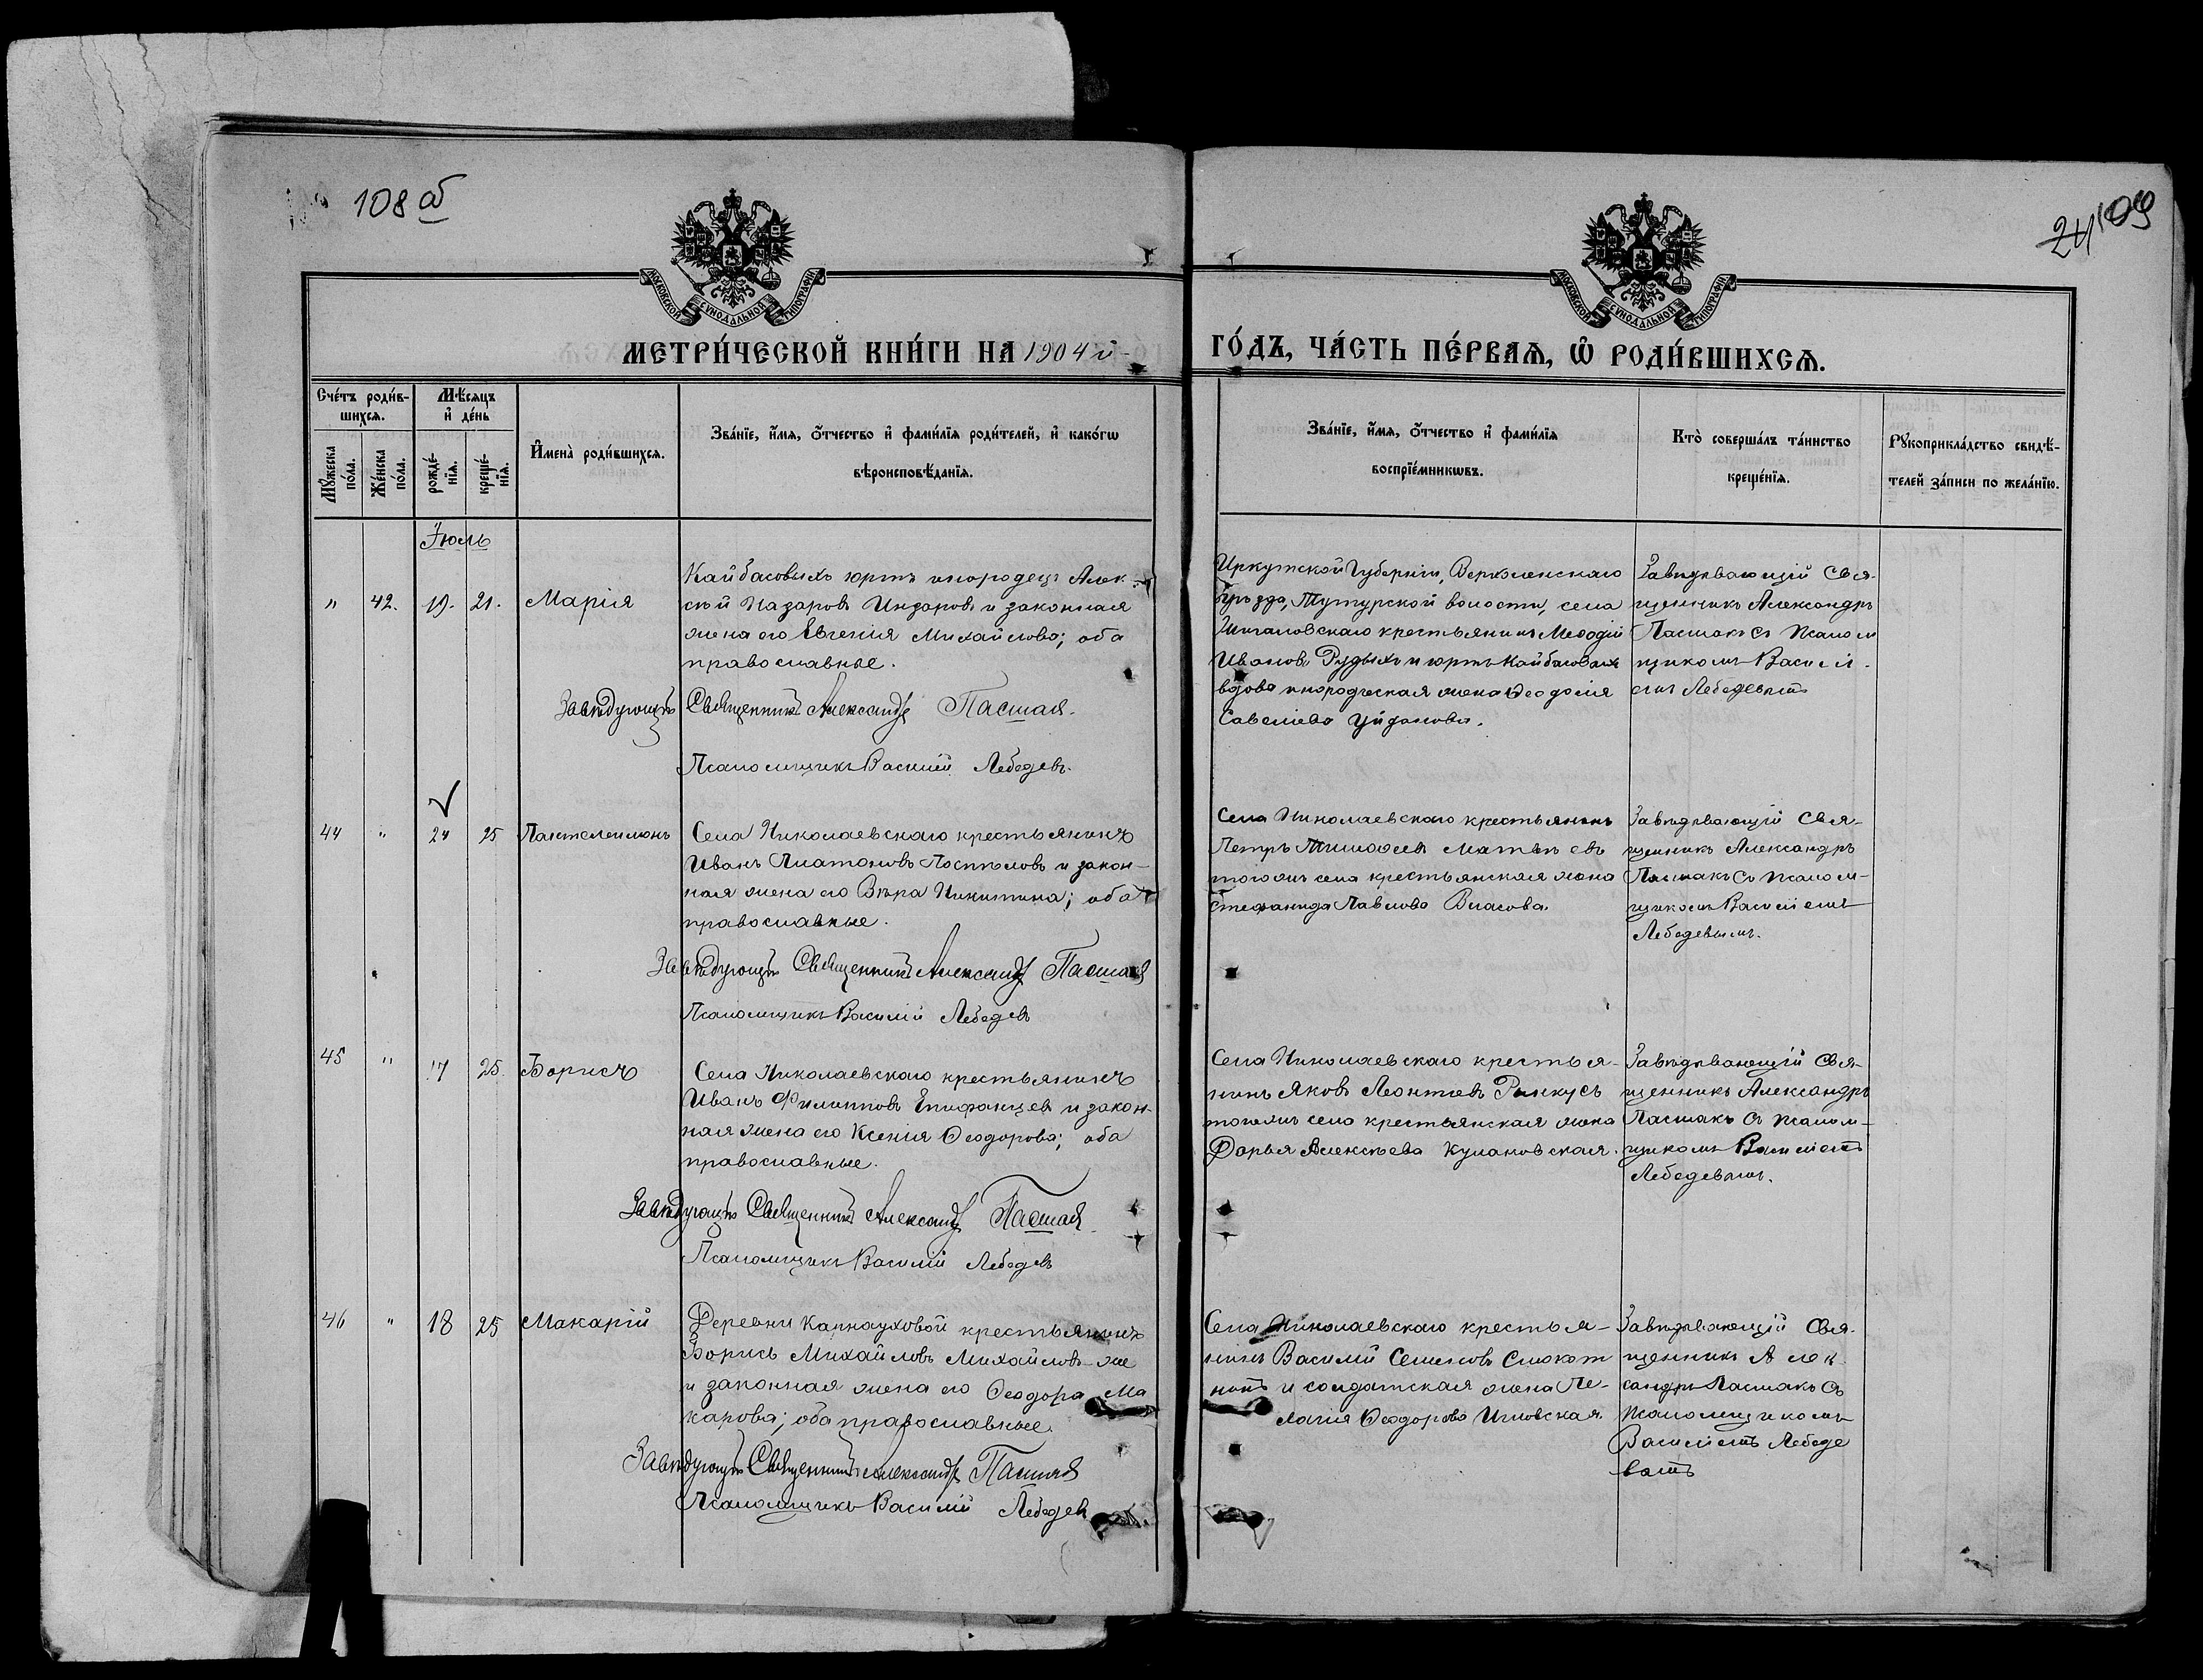 108 об
24 109
МОСКОВСКОЙ СѴНОДАЛЬНОЙ ТИПОГРАФІИ
МОСКОВСКОЙ СѴНОДАЛЬНОЙ ТИПОГРАФІИ
МЕТРИ́ЧЕСКОЙ КНИ́ГИ НА 1904 й
ГО́ДЪ, ЧА́СТЬ ПЕ́РВАѦ, Ѽ РОДИ́ВШИХСѦ.
Сче́тъ роди́в-
шихсѧ.
Мѣ́сѧцъ
и҆ де́нь
Мꙋ́жеска по́ла.
Же́нска по́ла.
рожде́-нїѧ.
креще́-нїѧ.
И҆мена̀ роди́вшихсѧ.
Зва́нїе, и҆́мѧ, ѻ҆́тчество и҆ фами́лїѧ роди́телей, и҆ како́гѡ
вѣроисповѣ́данїѧ.
Зва́нїе, и҆́мѧ, ѻ҆́тчество и҆ фами́лїѧ
воспрїе́мникѡвъ.
Кто̀ соверша́лъ та́инство
креще́нїѧ.
Рꙋкоприкла́дство свидѣ́-
телей за́писи по жела́нїю.
Іюль
" 42. 19. 21. Марія
Кайбасовыхъ юртъ инородецъ Алек-
сѣй Назаровъ Индаровъ и законная
жена его Евгенія Михайлова; оба
православные.
Завѣдующій Священникъ Александръ Пасмакъ.
Псаломщикъ Василій Лебедевъ.
Иркутской Губерніи, Верхоленскаго
Уѣзда, Тутурской волости, села
Жигаловскаго крестьянинъ Меѳодій
Ивановъ Рудыхъ и юртъ Кайбасовыхъ
вдова инородческая жена Ѳеодосія
Савельева Уйданова.
Завѣдывающій Свя-
щенникъ Александръ
Пасмакъ съ псалом
щикомъ Василі-
емъ Лебедевымъ
44 " 24 25 Пантелеимонъ
Села Николаевскаго крестьянинъ
Иванъ Платоновъ Поспѣловъ и закон-
ная жена его Вѣра Никитина; оба
православные.
Завѣдующій Священникъ Александръ Пасмакъ
Псаломщикъ Василій Лебедевъ
Села Николаевскаго крестьянинъ
Петръ Тимоѳеевъ Матвѣевъ
тогожъ села крестьянская жена
Стефанида Павлова Власова.
Завѣдывающій Свя-
щенникъ Александръ
Пасмакъ съ псалом-
щикомъ Василіемъ
Лебедевымъ.
45 " 17 25. Борисъ
Села Николаевскаго крестьянинъ
Иванъ Филипповъ Епифанцевъ и закон-
ная жена его Ксенія Ѳеодорова; оба
православные.
Завѣдующій Священникъ Александръ Пасмакъ
Псаломщикъ Василій Лебедевъ
Села Николаевскаго крестья-
нинъ Яковъ Леонтьевъ Ринкусъ
тогожъ села крестьянская жена
Дарья Алексѣева Кулаковская.
Завѣдывающій Свя-
щенникъ Александръ
Пасмакъ съ псалом-
щикомъ Василіемъ
Лебедевымъ.
46 " 18 25 Макарій
Деревни Карнауховой крестьянинъ
Борисъ Михайловъ Михайловъ-же
и законная жена его Ѳеодора Ма
карова; оба православные.
Завѣдующій Священникъ Александръ Пасмакъ
Псаломщикъ Василій Лебедевъ
Села Николаевскаго крестья-
нинъ Василій Семеновъ
и солдатская жена Пе-
лагія Ѳеодорова
Завѣдывающій Свя-
щенникъ Алек
сандръ Пасмакъ съ
псаломщикомъ
Василіемъ Лебеде
вымъ